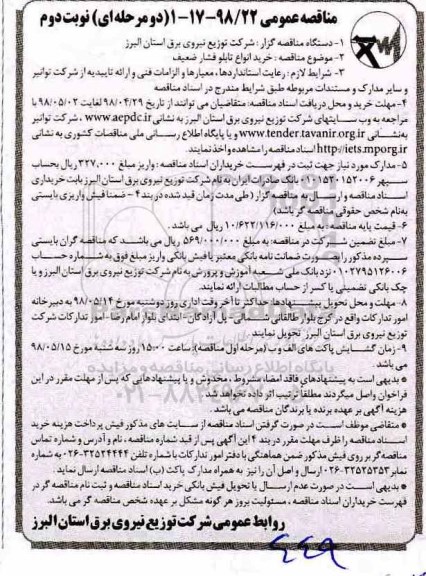 مناقصه عمومی ۹۸/۲۲-۱۷-۱ (دو مرحله ای) نوبت دوم
۱- دستگاه مناقصه گزار: شرکت توزیع نیروی برق استان البرز
۲- موضوع مناقصه: خرید انواع تابلو فشار ضعیف
۳- شرایط لازم: رعایت استانداردها، معیارها و الزامات فنی و ارائه تاییدیه از شرکت توانیر
و سایر مدارک و مستندات مربوطه طبق شرایط مندرج در اسناد مناقصه
۴- مهلت خرید و محل دریافت اسناد مناقصه: متقاضیان می توانند از تاریخ ۹۸/۰۴/۲۹ لغایت ۹۸/۰۵/۰۲ با
مراجعه به وب سایتهای شرکت توزیع نیروی برق استان البرز به نشانی www.aepdc.ir، شرکت توانیر
به نشانی www.tender.tavanir.org.ir و یا پایگاه اطلاع رسانی ملی مناقصات کشوری به نشانی
http://iets.mporg.ir اسناد مناقصه را مشاهده و اخذ نمایند.
۵- مدارک مورد نیاز جهت ثبت در فهرست خریداران اسناد مناقصه: واریز مبلغ ۳۲۷.۰۰۰ ریال بحساب
سپهر ۰۱۰۱۵۲۰۱۵۲۰۰۶ بانک صادرات ایران به نام شرکت توزیع نیروی برق استان البرز بابت خریداری
اسناد مناقصه و ارسال به مناقصه گزار (طی مدت زمان قید شده در بند ۴ - ضمنا فیش واریزی بایستی
به نام شخص حقوقی مناقصه گر باشد)
۶- قیمت پایه مناقصه: به مبلغ ۱۰/۶۲۲/۱۱۶/۰۰۰ ریال می باشد.
۷- مبلغ تضمین شرکت در مناقصه: به مبلغ ۵۶۹/۰۰۰/۰۰۰ ریال می باشد که مناقصه گران بایستی
سپرده مذکور را بصورت ضمانت نامه بانکی معتبر یا فیش بانکی واریز مبلغ فوق به شماره حساب
۰۱۰۲۷۹۵۱۲۶۰۰۶ نزد بانک ملی شعبه آموزش و پرورش به نام شرکت توزیع نیروی برق استان البرز و یا
چک بانکی تضمینی یا کسر از حساب مطالبات ارائه نمایند.
۸- مهلت و محل تحویل پیشنهادها: حداکثر تا آخر وقت اداری روز دوشنبه مورخ ۹۸/۰۵/۱۴ به دبیرخانه
امور تدارکات واقع در کرج بلوار طالقانی شمالی - پل آزادگان - ابتدای بلوار امام رضا - امور تدارکات شرکت
توزیع نیروی برق استان البرز تحویل نمایند.
۹- زمان گشایش پاکت های الف و ب (مرحله اول مناقصه): ساعت ۱۵:۰۰ روز سه شنبه مورخ ۹۸/۰۵/۱۵
می باشد.
* بدیهی است به پیشنهادهای فاقد امضا، مشروط، مخدوش و یا پیشنهادهایی که پس از مهلت مقرر در این
فراخوان واصل میگردند مطلقا ترتیب اثر داده نخواهد شد.
هزینه آگهی بر عهده برنده یا برندگان مناقصه می باشد.
* متقاضی موظف است در صورت گرفتن اسناد مناقصه از سایت های مذکور فیش پرداخت هزینه خرید
اسناد مناقصه را ظرف مهلت مقرر در بند ۴ این آگهی پس از قید شماره مناقصه، نام و آدرس و شماره تماس
مناقصه گر بر روی فیش مذکور ضمن هماهنگی با دفتر امور تدارکات با شماره تلفن ۳۲۵۲۴۴۴۴-۰۲۶ به شماره
نمابر ۳۲۵۲۵۳۵۳-۰۲۶ ارسال و اصل آن را نیز به همراه مدارک پاکت (ب) اسناد مناقصه ارسال نماید.
* بدیهی است در صورت عدم ارسال یا تحویل فیش بانکی خرید اسناد مناقصه و ثبت نام مناقصه گر در
فهرست خریداران اسناد مناقصه، مسئولیت بروز هر گونه مشکل بر عهده شخص مناقصه گر می باشد.
روابط عمومی شرکت توزیع نیروی برق استان البرز